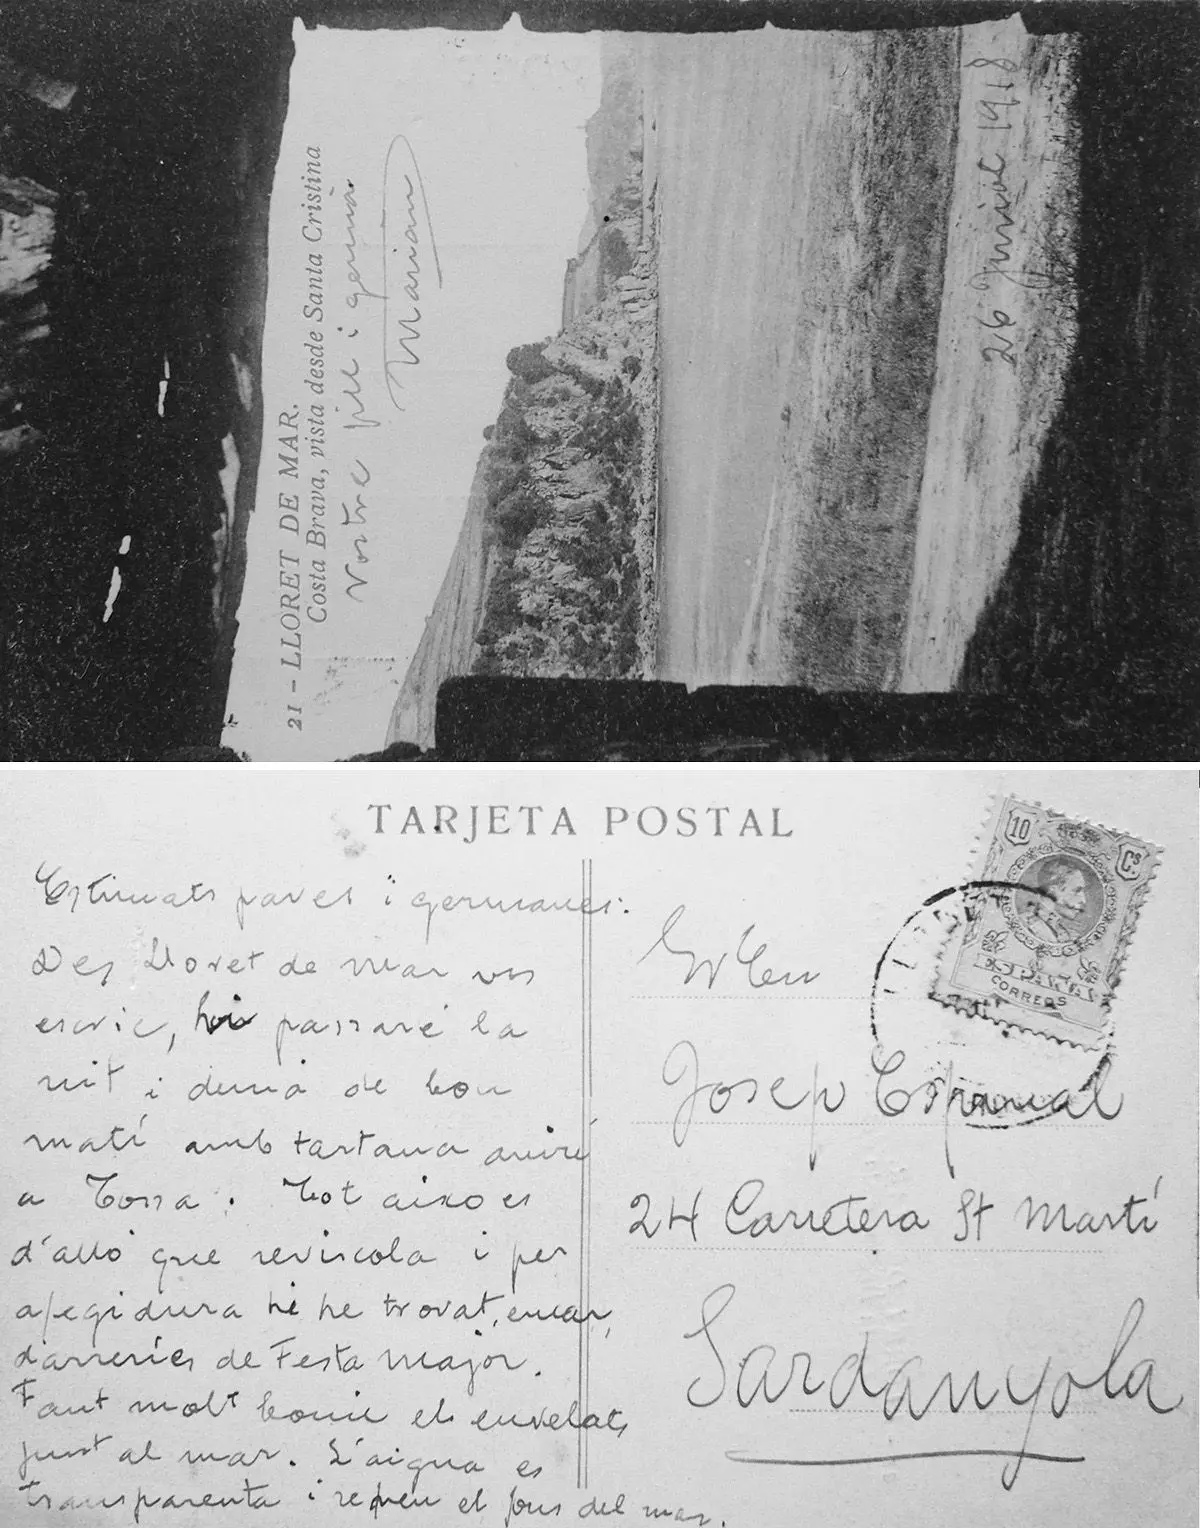 21 - LLORET DE MAR.
Costa Brava, vista desde Santa Cristina
Vostre fill i germà.
Marian
26 Juriol 1918
TARJETA POSTAL
Estimats pares i germanes:
Des Lloret de mar vos
escric, hi passaré la
nit i demà de bon
matí amb tartana aniré
a Tossa. Tot aixo es
d'allò que reviscola i per
afegidura hi he trovat, encar,
darreries de Festa major.
Fant molt bonic els envelats
junt al mar. L'aigua es
transparenta i se veu el fons del mar.
10 Cs
ESPAÑA
CORREOS
Sr En
Josep Espinal
24 Carretera St Martí
Sardanyola